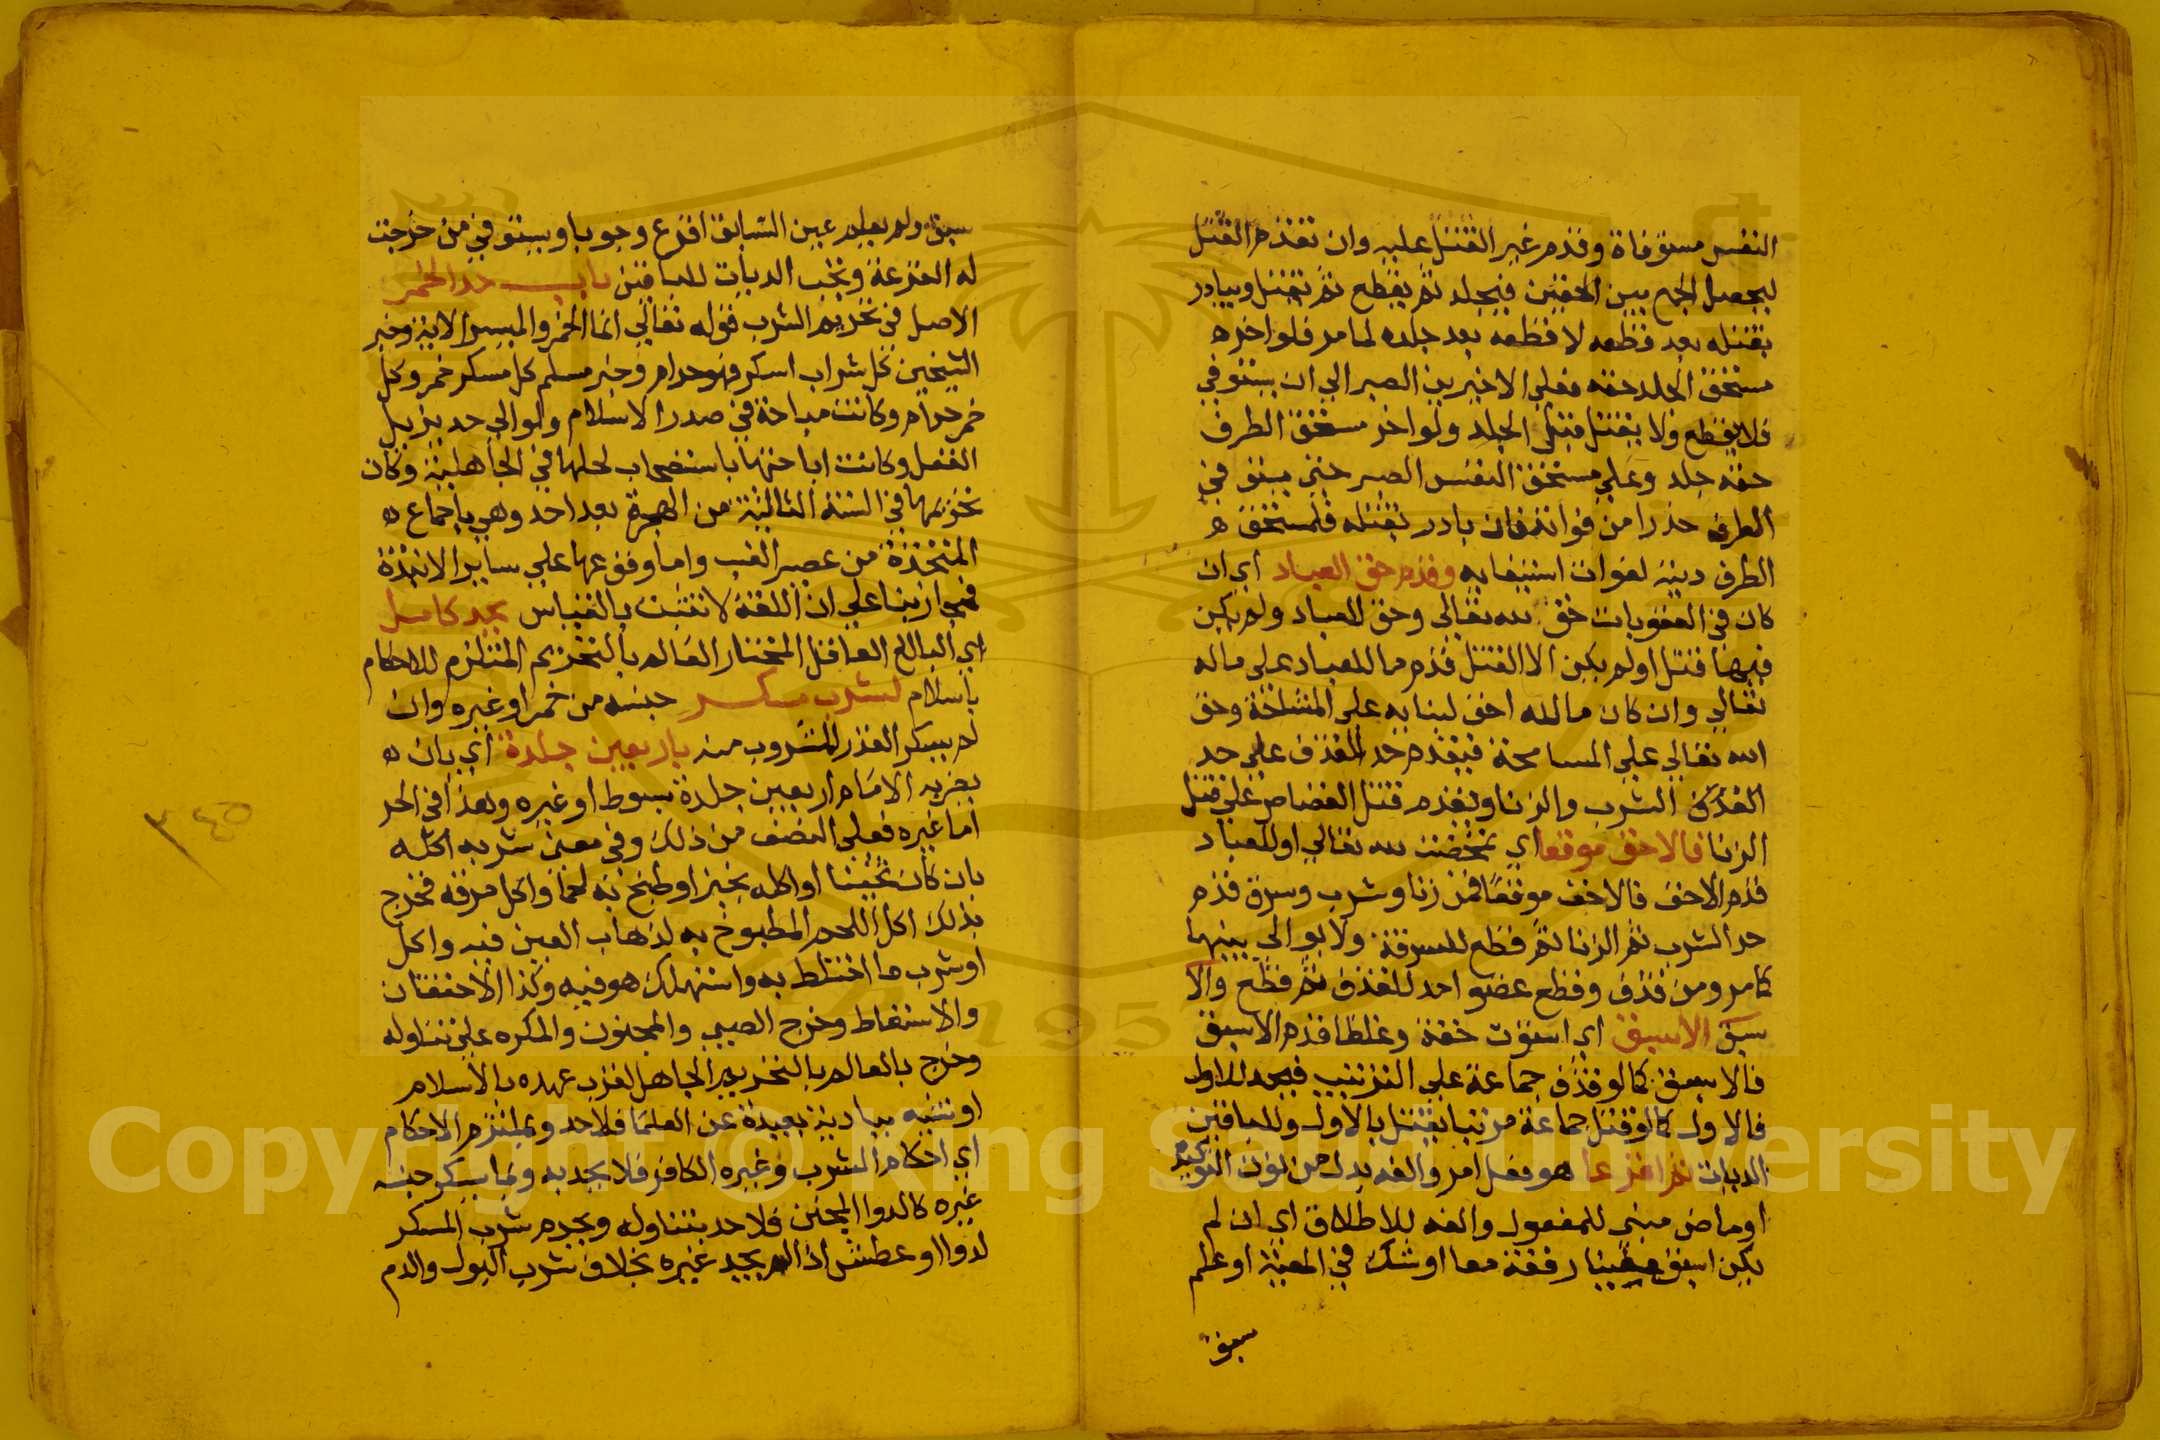 النفس مستوفاة وقدم غير القتل عليه وان تقدم القتل
ليحصل الجمع بين الحقين فيجلد ثم يقطع ثم يقتل ويبادر
بقتله بعد قطعه لا قطعه بعد جلده لما مر فلو اخره
مستحق الجلد حقه فعلي الاخيرين الصبر الي ان يستوفي
فلا يقطع ولا يقتل قبل الجلد ولو اخر مستحق الطرف
حقه جلد وعلي مستحق النفس الصبر حتي يستوفي
الطرف حذرا من فواته فان بادر بقتله فلمستحق
الطرف دية لفوات استيفايه وقدم حق العباد اي ان
كان في العقوبات حق لله تعالي وحق للعباد ولم يكن
فيها قتل او لم يكن الا القتل قدم ما للعباد علي ما له
تعالي وان كان ما لله اخف لبنايه علي المشاحة وحق
الله تعالي علي المسامحة فيقدم حد القذف علي حد
الشرب والزنا ويقدم قتل القصاص علي قتل
الزنا فالاخف موقعا اي تمحضت لله تعالي او للعباد
قدم الاخف فالاخف موقعا فمن زنا وشرب وسرق قدم
حد الشرب ثم الزنا ثم قطع للسرقة ولا يوالي بينهما
كما مر ومن قذف وقطع عضو احد للقذف ثم قطع والا
سبق الاسبق اي استوت خفة وغلظا قدم الاسبق
فالاسبق كما لو قذف جماعة علي الترتيب فيحد للاول
فالاول كما لو قتل جماعة مرتبا يقتل بالاول وللباقين
الديات ثم اقرعا هو فعل امر والفه بدل من نون التوكيد
او ماض مبني للمفعول والفه للاطلاق اي ان لم
يكن اسبق رفقة معا او شك في المعية او علم
سبق
سبق ولم يعلم عين السابق اقرع وجوبا ويستوفي من خرجت
له القرعة وتجب الديات للباقين باب حد الخمر
الاصل في تحريم الشرب قوله تعالي انما الخمر والميسر الاية وخبر
الشيخين كل شراب اسكر فهو حرام وخبر مسلم كل مسكر خمر وكل
خمر حرام وكانت مباحة في صدر الاسلام ولو الي حد يزيل
العقل وكانت اباحتها باستصحاب لحلها في الجاهلية وكان
تحريمها في السنة الثالثة من الهجرة بعد احد وهي باجماع
المتخذة من عصير العنب واما وقوعها علي ساير الانبذة
فمجاز بنا علي ان اللغة لا تثبت بالقياس يحد كامل
اي البالغ العاقل المختار العالم بالتحريم الملتزم للاحكام
باسلام لشرب مسكر جنسه من خمر او غيره وان
لم يسكر القدر المشروب منه باربعين جلدة اي بان
يضربه الامام اربعين جلدة بسوط او غيره وهذا في الحر
اما غيره فعلي النصف من ذلك وفي معني شربه اكله
بان كان ثخينا او اكله بخبز او طبخ به لحما واكل مرقه فخرج
بذلك اكل اللحم المطبوخ به لذهاب العين فيه واكل
او شرب ما اختلط به واستهلك هو فيه وكذا الاحتقان
والاستعاط وخرج الصبي والمجنون والمكره علي تناوله
وخرج بالعالم بالتحريم الجاهل لقرب عهده بالاسلام
او نشيه ببادية بعيدة عن العلما فلا حد وبملتزم الاحكام
اي احكام الشرب وغيره الكافر فلا يحد به وبما يسكر جنسه
غيره كالدوا المجنن فلا حد بتناوله ويحرم شرب المسكر
لدوا او عطش اذا لم يجد غيره بخلاف شرب البول والدم
٣٤٥
Copyright © King Saud University
1957